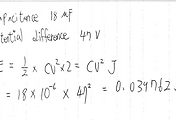 apacitance 18 μF
tential difference 47 V
E = 1/2 × CV² × 2 = CV² J
= 18 × 10⁻⁶ × 47² = 0.039762 J